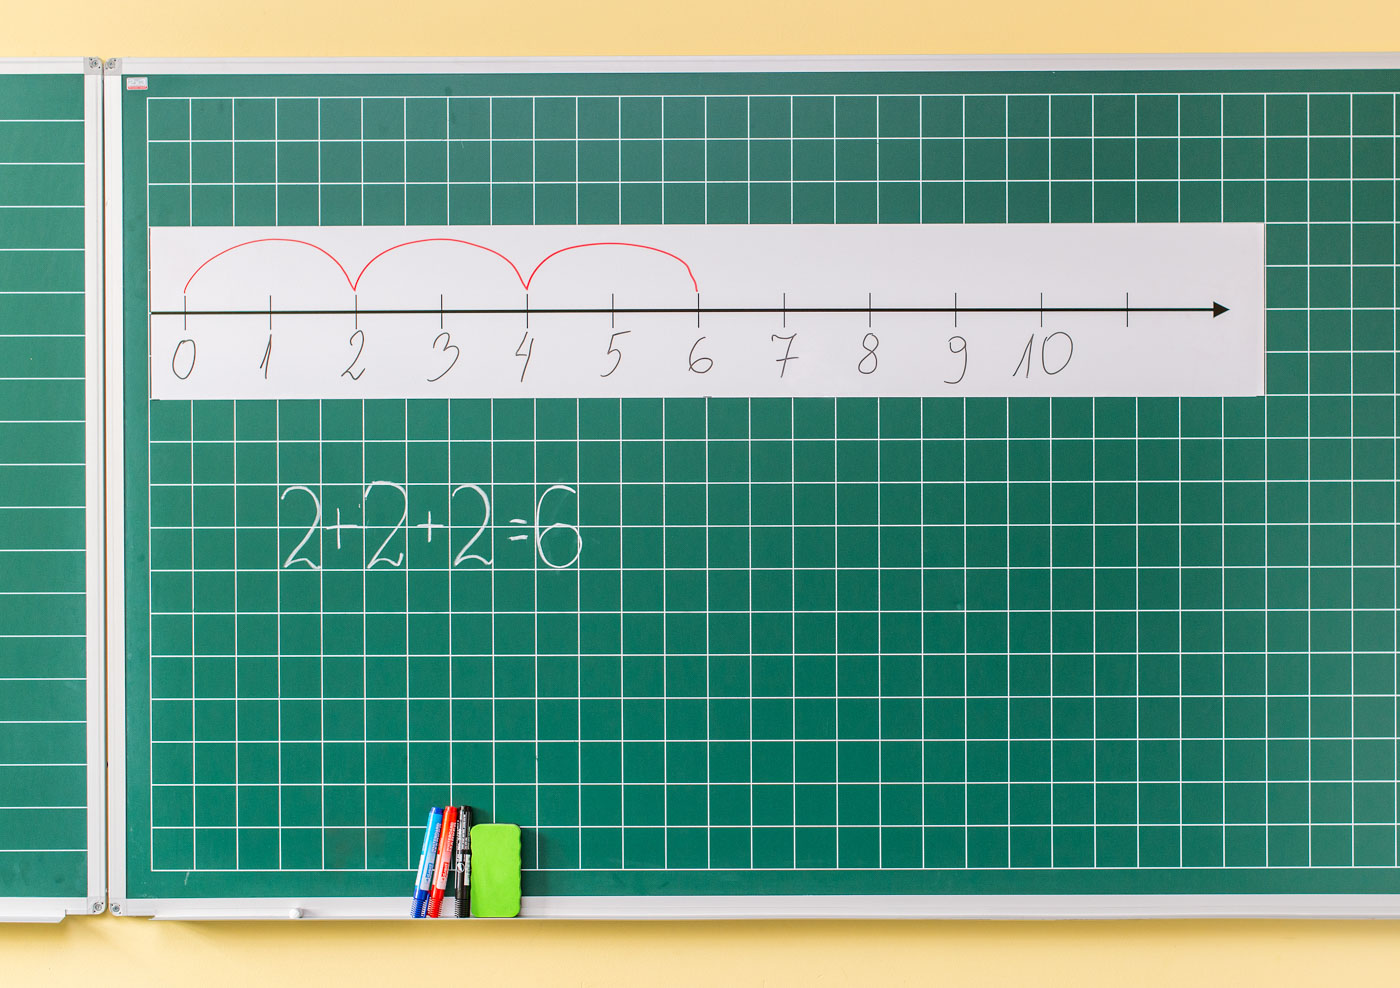 0 1 2 3 4 5 6 7 8 9 10
2+2+2=6